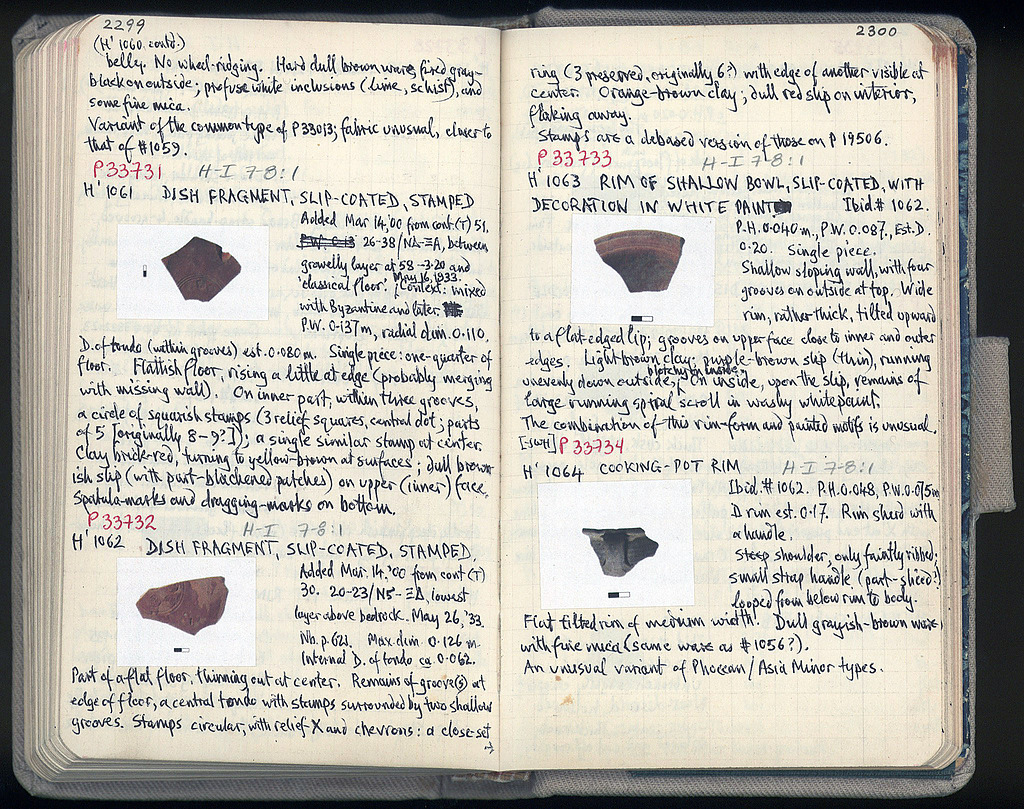 2299
(H' 1060. contd.)
belly. No wheel-ridging. Hard dull brown ware, fired gray-
black on outside; profuse white inclusions (lime, schist), and
some fine mica.
Variant of the common type of P 33013; fabric unusual, closer to
that of #1059.
P 33731 H-I 7-8:1
H' 1061 DISH FRAGMENT, SLIP-COATED, STAMPED
Added Mar 14, '00 from cont. (T) 51,
26-38/ΝΔ-ΞΑ, between
gravelly layer at 58 -3.20 and
'classical floor'. May 16, 1933. Context: mixed
with Byzantine and later
P.W. 0.137m, radial dim. 0.110.
D. of tondo (within grooves) est. 0.080 m. Single piece: one-quarter of
floor. Flattish floor, rising a little at edge (probably merging
with missing wall). On inner part, within three grooves,
a circle of squarish stamps (3 relief squares, central dot; parts
of 5 [originally 8-9?]); a single similar stamp at center.
Clay brick-red, turning to yellow-brown at surfaces; dull brown-
ish slip (with part-blackened patches) on upper (inner) face.
Spatula-marks and dragging-marks on bottom.
P 33732 H-I 7-8:1
H' 1062 DISH FRAGMENT, SLIP-COATED, STAMPED
Added Mar. 14, '00 from cont (T)
30. 20-23/ lowest
layer above bedrock. May 26, '33.
Nb. p. 621. Max. dim. 0.126 m.
Internal D. of tondo ca 0.062.
Part of a flat floor, thinning out at center. Remains of groove(s) at
edge of floor, a central tondo with stamps surrounded by two shallow
grooves. Stamps circular, with relief-X and chevrons: a close-set
→
2300
ring (3 preserved, originally 6?) with edge of another visible at
center. Orange-brown clay; dull red slip on interior,
flaking away.
Stamps are a debased version of those on P 19506.
P 33733 H-I 7-8:1
H' 1063 RIM OF SHALLOW BOWL, SLIP-COATED, WITH
DECORATION IN WHITE PAINT Ibid # 1062.
P.H. 0.040 m., P.W. 0.087., Est. D.
0.20. Single piece.
Shallow sloping wall, with four
grooves on outside at top. Wide
rim, rather thick, tilted upward
to a flat-edged lip; grooves on upper face close to inner and outer
edges. Light brown clay; purple-brown slip (thin), running
unevenly down outside, blotchy on inside. On inside, upon the slip, remains of
large running spiral scroll in washy white paint.
The combination of this rim-form and painted motifs is unusual.
[JWH] P 33734
H' 1064 COOKING-POT RIM H-I 7-8:1
Ibid. # 1062. P.H. 0.048, P.W. 0.075m
D rim est. 0.17. Rim sherd with
a handle.
Steep shoulder, only faintly ribbed;
small strap handle (part-sliced?)
looped from below rim to body.
Flat tilted rim of medium width. Dull grayish-brown ware
with fine mica (same ware as #1056?).
An unusual variant of Phocean / Asia Minor types.